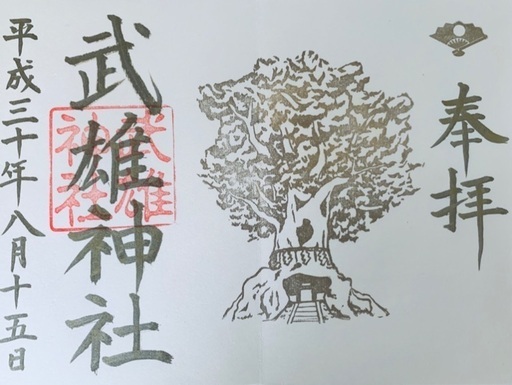 奉拝
武雄神社
武雄
神社
平成三十年八月十五日